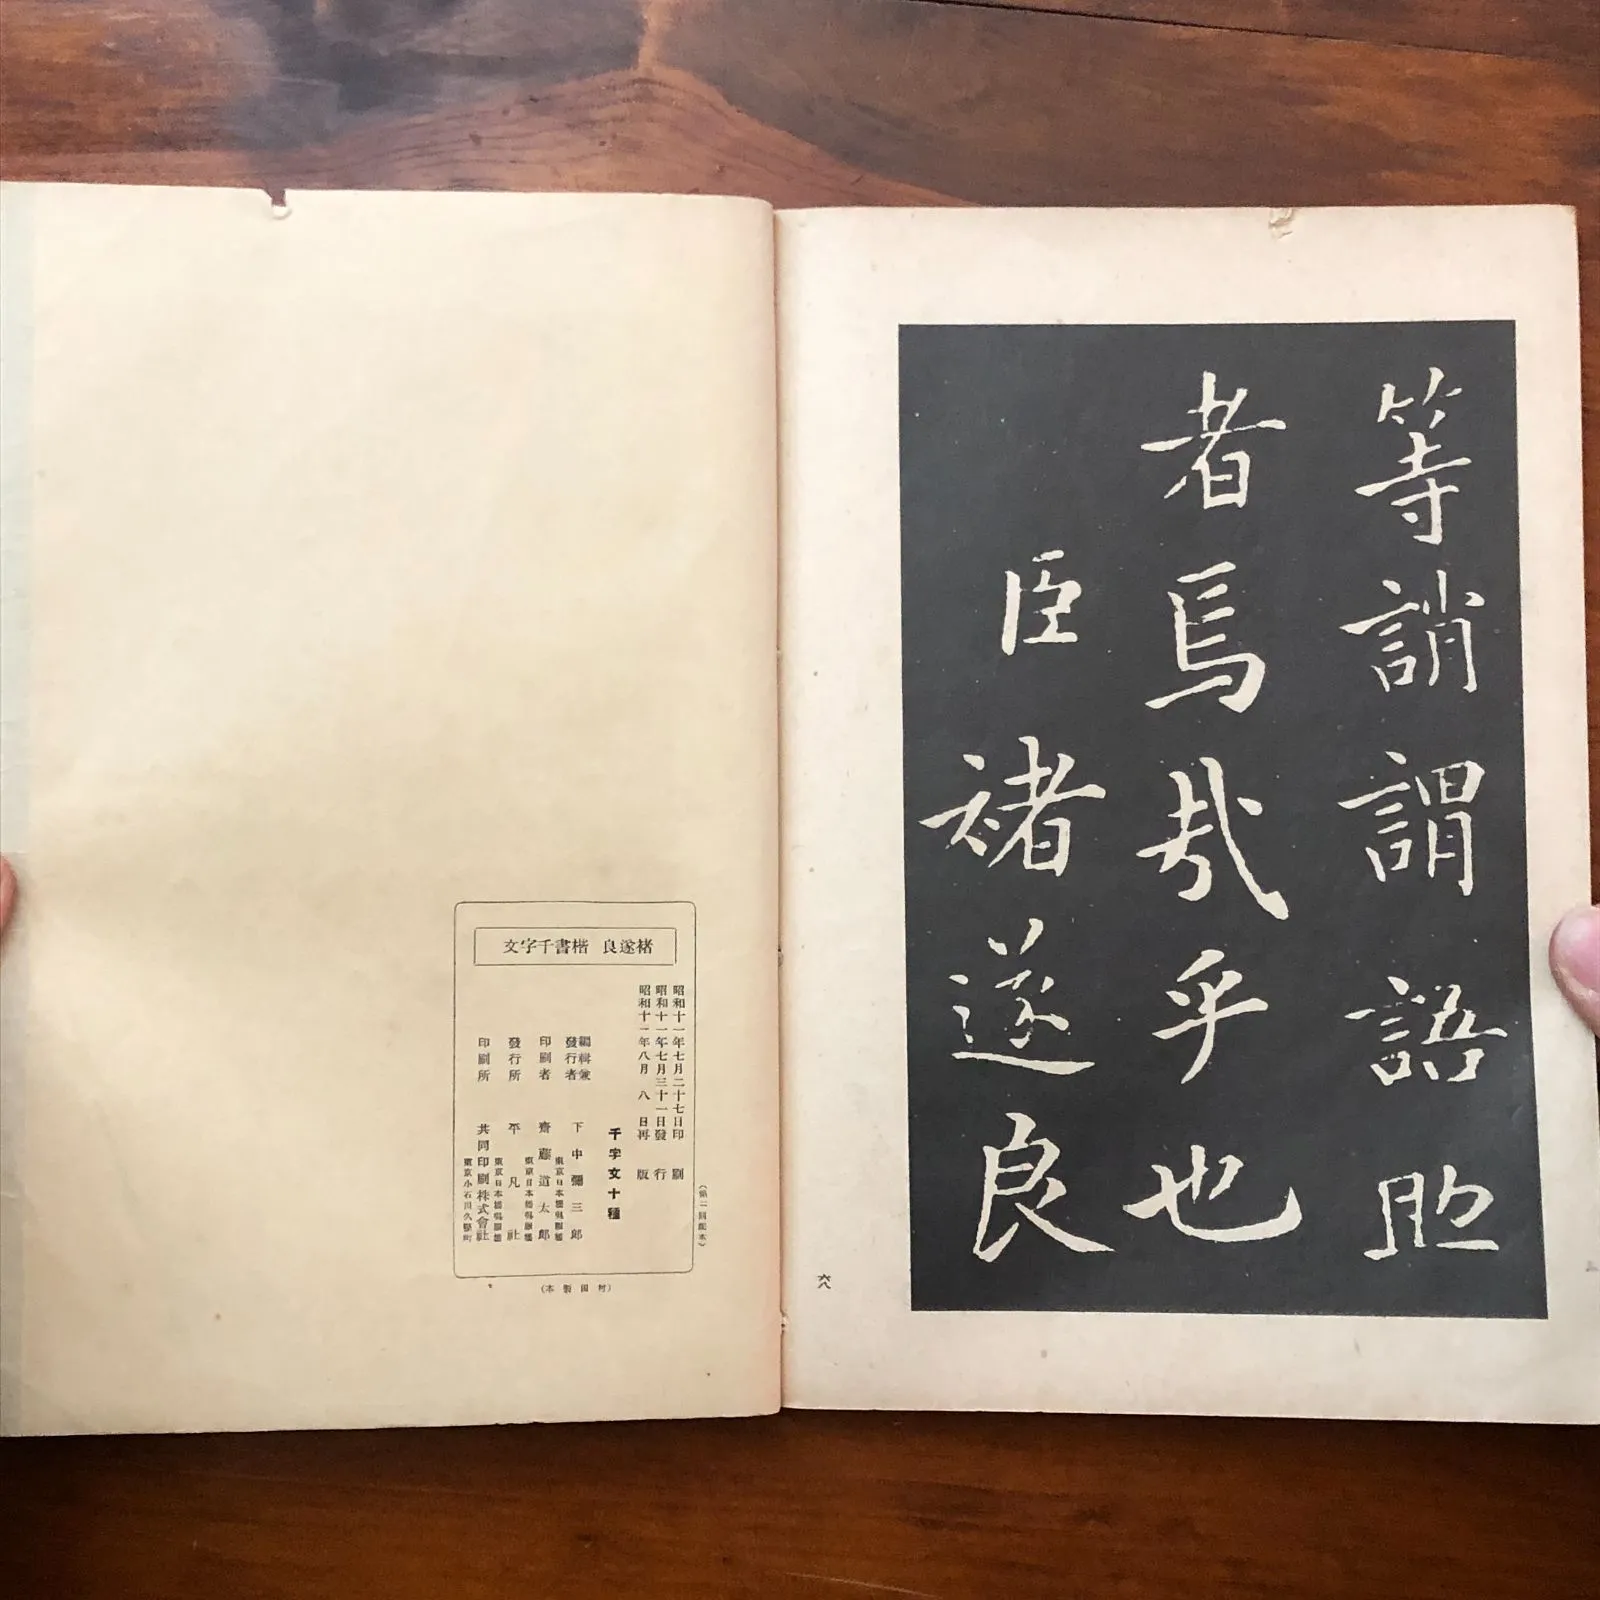 等誚謂語助
者焉哉乎也
臣
褚遂良
六八
褚遂良 楷書千字文
昭和十一年七月二十七日印刷
昭和十一年七月三十一日發行
昭和十一年八月八日再版
(第二回配本)
千字文十種
編輯兼發行者 下中彌三郎
印刷者 齋藤道太郎
發行所 平凡社
印刷所 共同印刷株式會社
(町田製本)